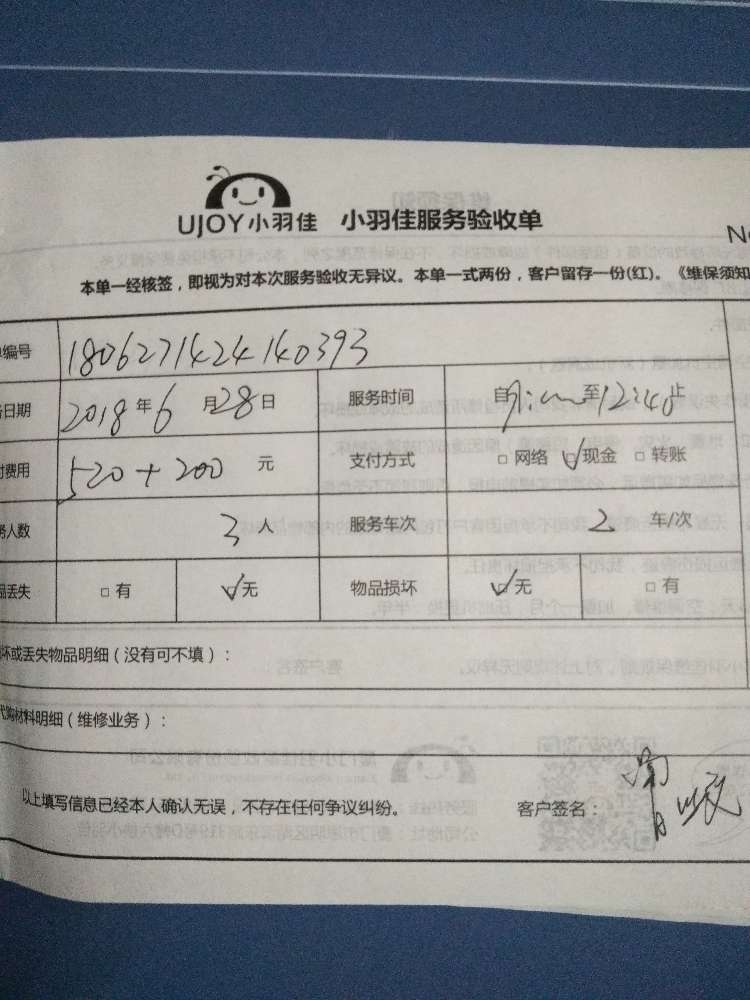 UJOY小羽佳 小羽佳服务验收单
本单一经核签，即视为对本次服务验收无异议。本单一式两份，客户留存一份(红)。《维保须知
编号 1806271424140393
日期 2018年6月28日 服务时间 自 至12:40止
费用 520+200 元 支付方式 □网络 ☑现金 □转账
人数 3人 服务车次 2 车/次
丢失 □有 ☑无 物品损坏 ☑无 □有
坏或丢失物品明细（没有可不填）：
代购材料明细（维修业务）：
以上填写信息已经本人确认无误，不存在任何争议纠纷。 客户签名：